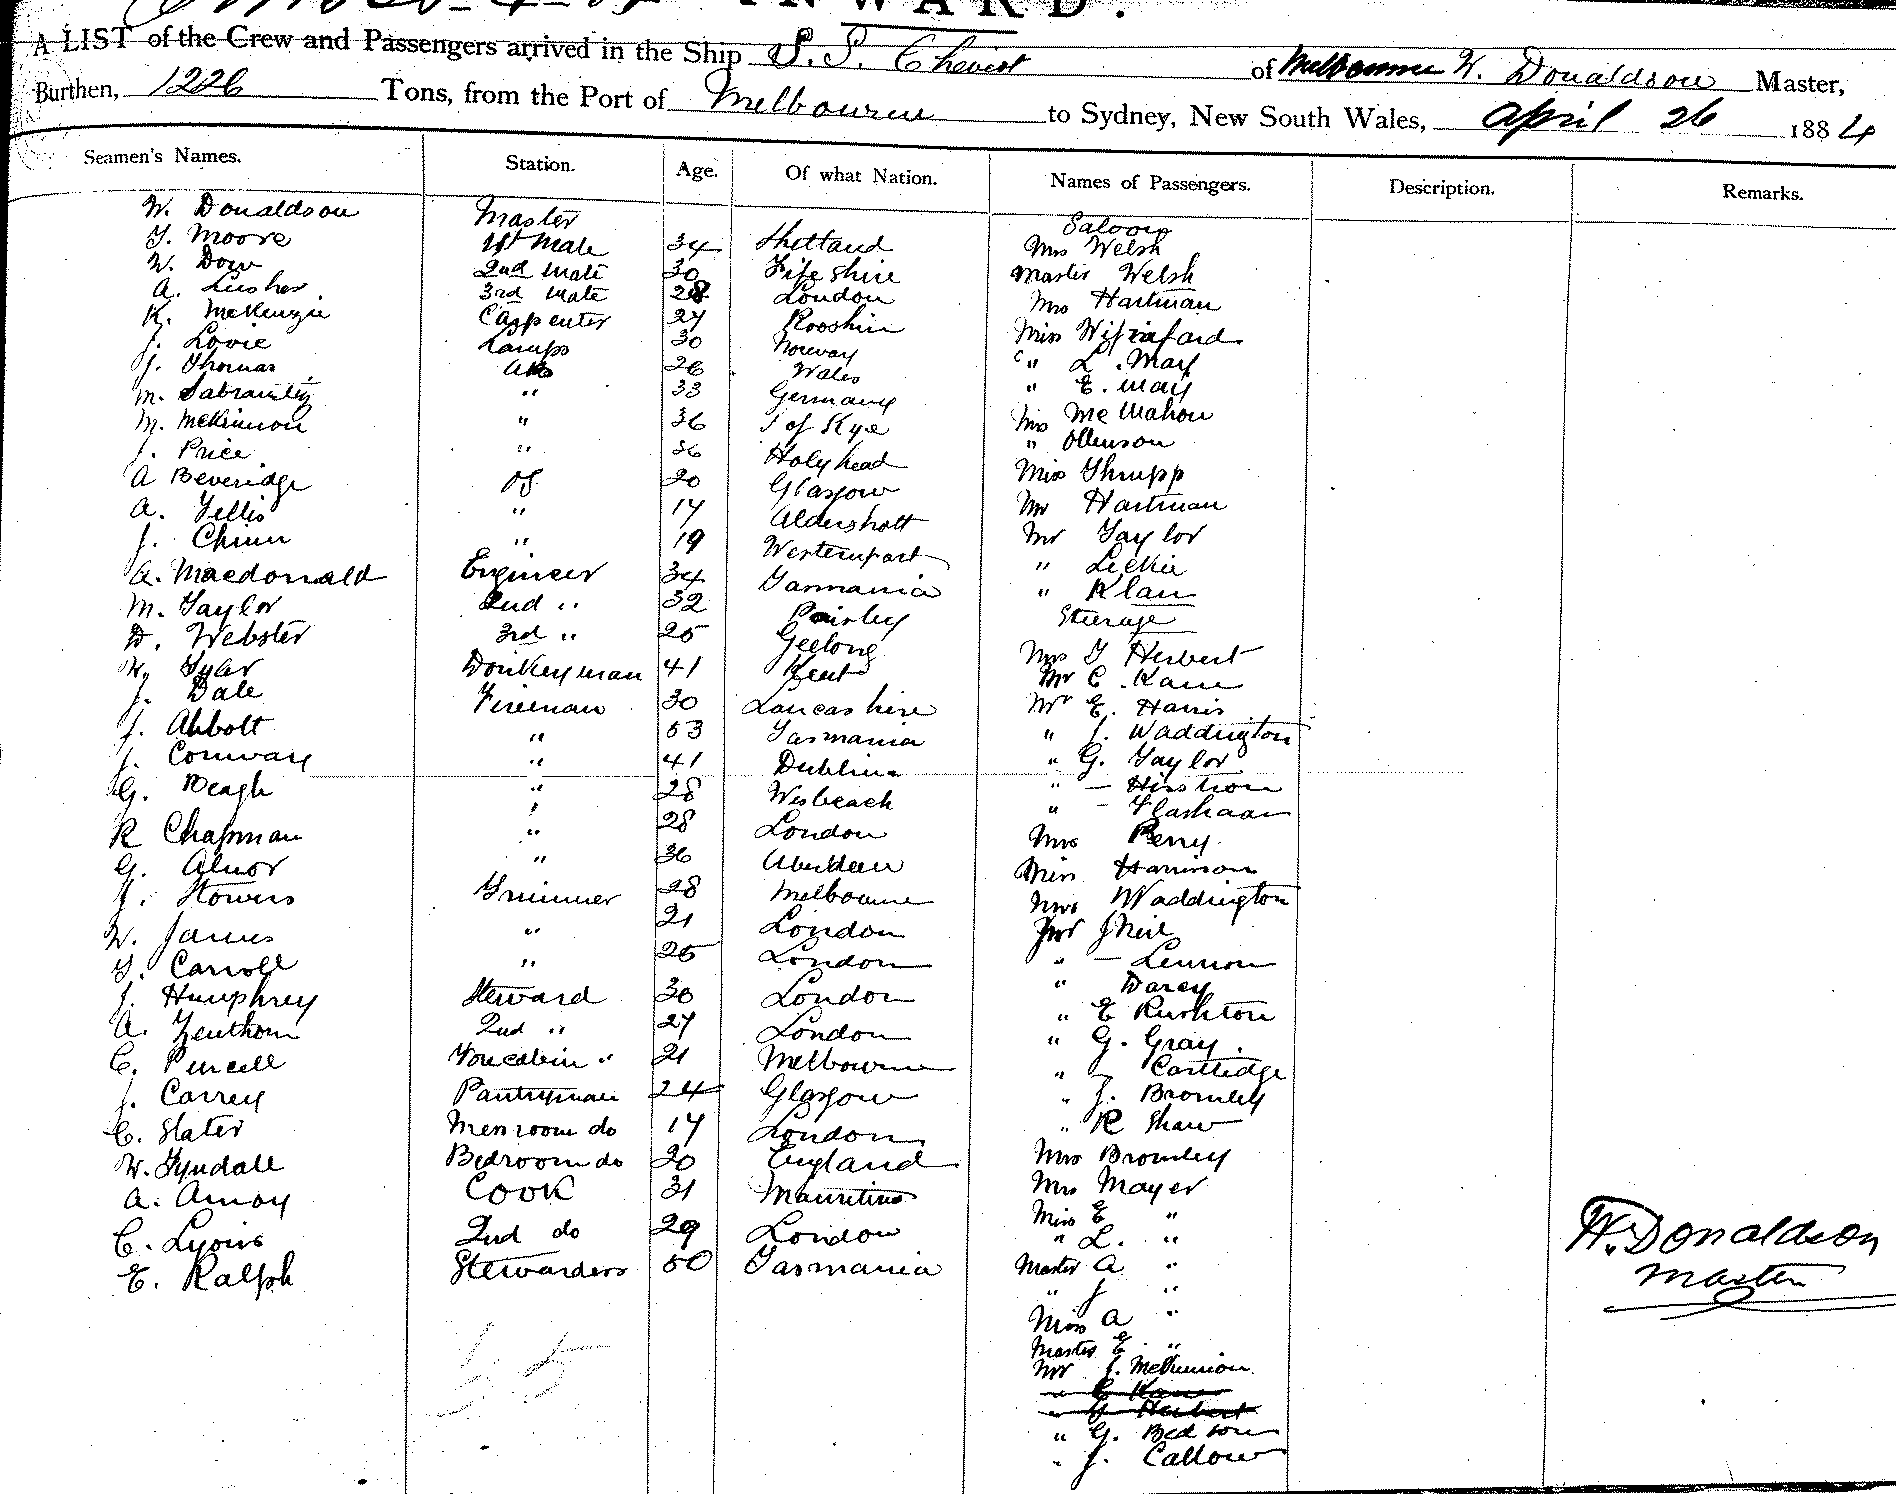 INWARD.
A LIST of the Crew and Passengers arrived in the Ship S. S. Cheviot of Melbourne W. Donaldson Master,
Burthen, 1226 Tons, from the Port of Melbourne to Sydney, New South Wales, April 26 1884
Seamen's Names. Station. Age. Of what Nation. Names of Passengers. Description. Remarks.
W. Donaldson Master Saloon
T. Moore 1st Mate 34 Shetland Mrs Welsh
W. Dow 2nd Mate 30 Fifeshire Master Welsh
A. Lusher 3rd Mate 28 London Mrs Hartman
K. McKenzie Carpenter 27 Miss
J. Lovie Lamps 30 Norway " L. May
J. Thomas AB 26 Wales " E. May
M. 33 Germany Mrs McMahon
M. McKinnon " 36 I of Skye " Ollenson
J. Price " 36 Holyhead Miss Thrupp
A Beveridge OS 20 Glasgow Mr Hartman
A. Tellis " 17 Aldershott Mr Taylor
J. Chinn " 19 Westernport " Leckie
A. Macdonald Engineer 34 Tasmania " Klan
M. Taylor 2nd " 32 Paisley Steerage
D. Webster 3rd " 25 Geelong Mrs T Herbert
W. Tyler Donkeyman 41 Kent Mr C. Kane
J. Dale Fireman 30 Lancashire Mr E. Harris
J. Abbott " 53 Tasmania " J. Waddington
J. Conway " 41 Dublin " G. Taylor
G. Beagh " 28 Wisbeach " —
R Chapman " 28 London " —
G. Alnor " 36 Aberdeen Mrs Perry
J. Stowers Trimmer 28 Melbourne Miss Harrison
W. James " 21 London Mrs Waddington
T. Carroll " 25 London Mr J Neil
J. Humphrey Steward 30 London " — Lennon
A. Zenthon 2nd " 27 London " Darcy
C. Purcell Forecabin " 21 Melbourne " E Rushton
J. Carrey Pantryman 24 Glasgow " G. Gray.
C. Slater Messroom do 17 London " — Cartledge
W. Tyndall Bedroom do 20 England " J. Bromley
A. Amoy Cook 31 Mauritius " R Shaw
C. Lyons 2nd do 29 London Mrs Bromley
E. Ralph Stewardess 50 Tasmania Mrs Mayer
Miss E "
" L. "
Master A "
" J "
Miss A "
Master E "
Mr J. McKinnon
" C Kane
" T Herbert
" G. Bedson
" J. Callow
W. Donaldson
Master
35